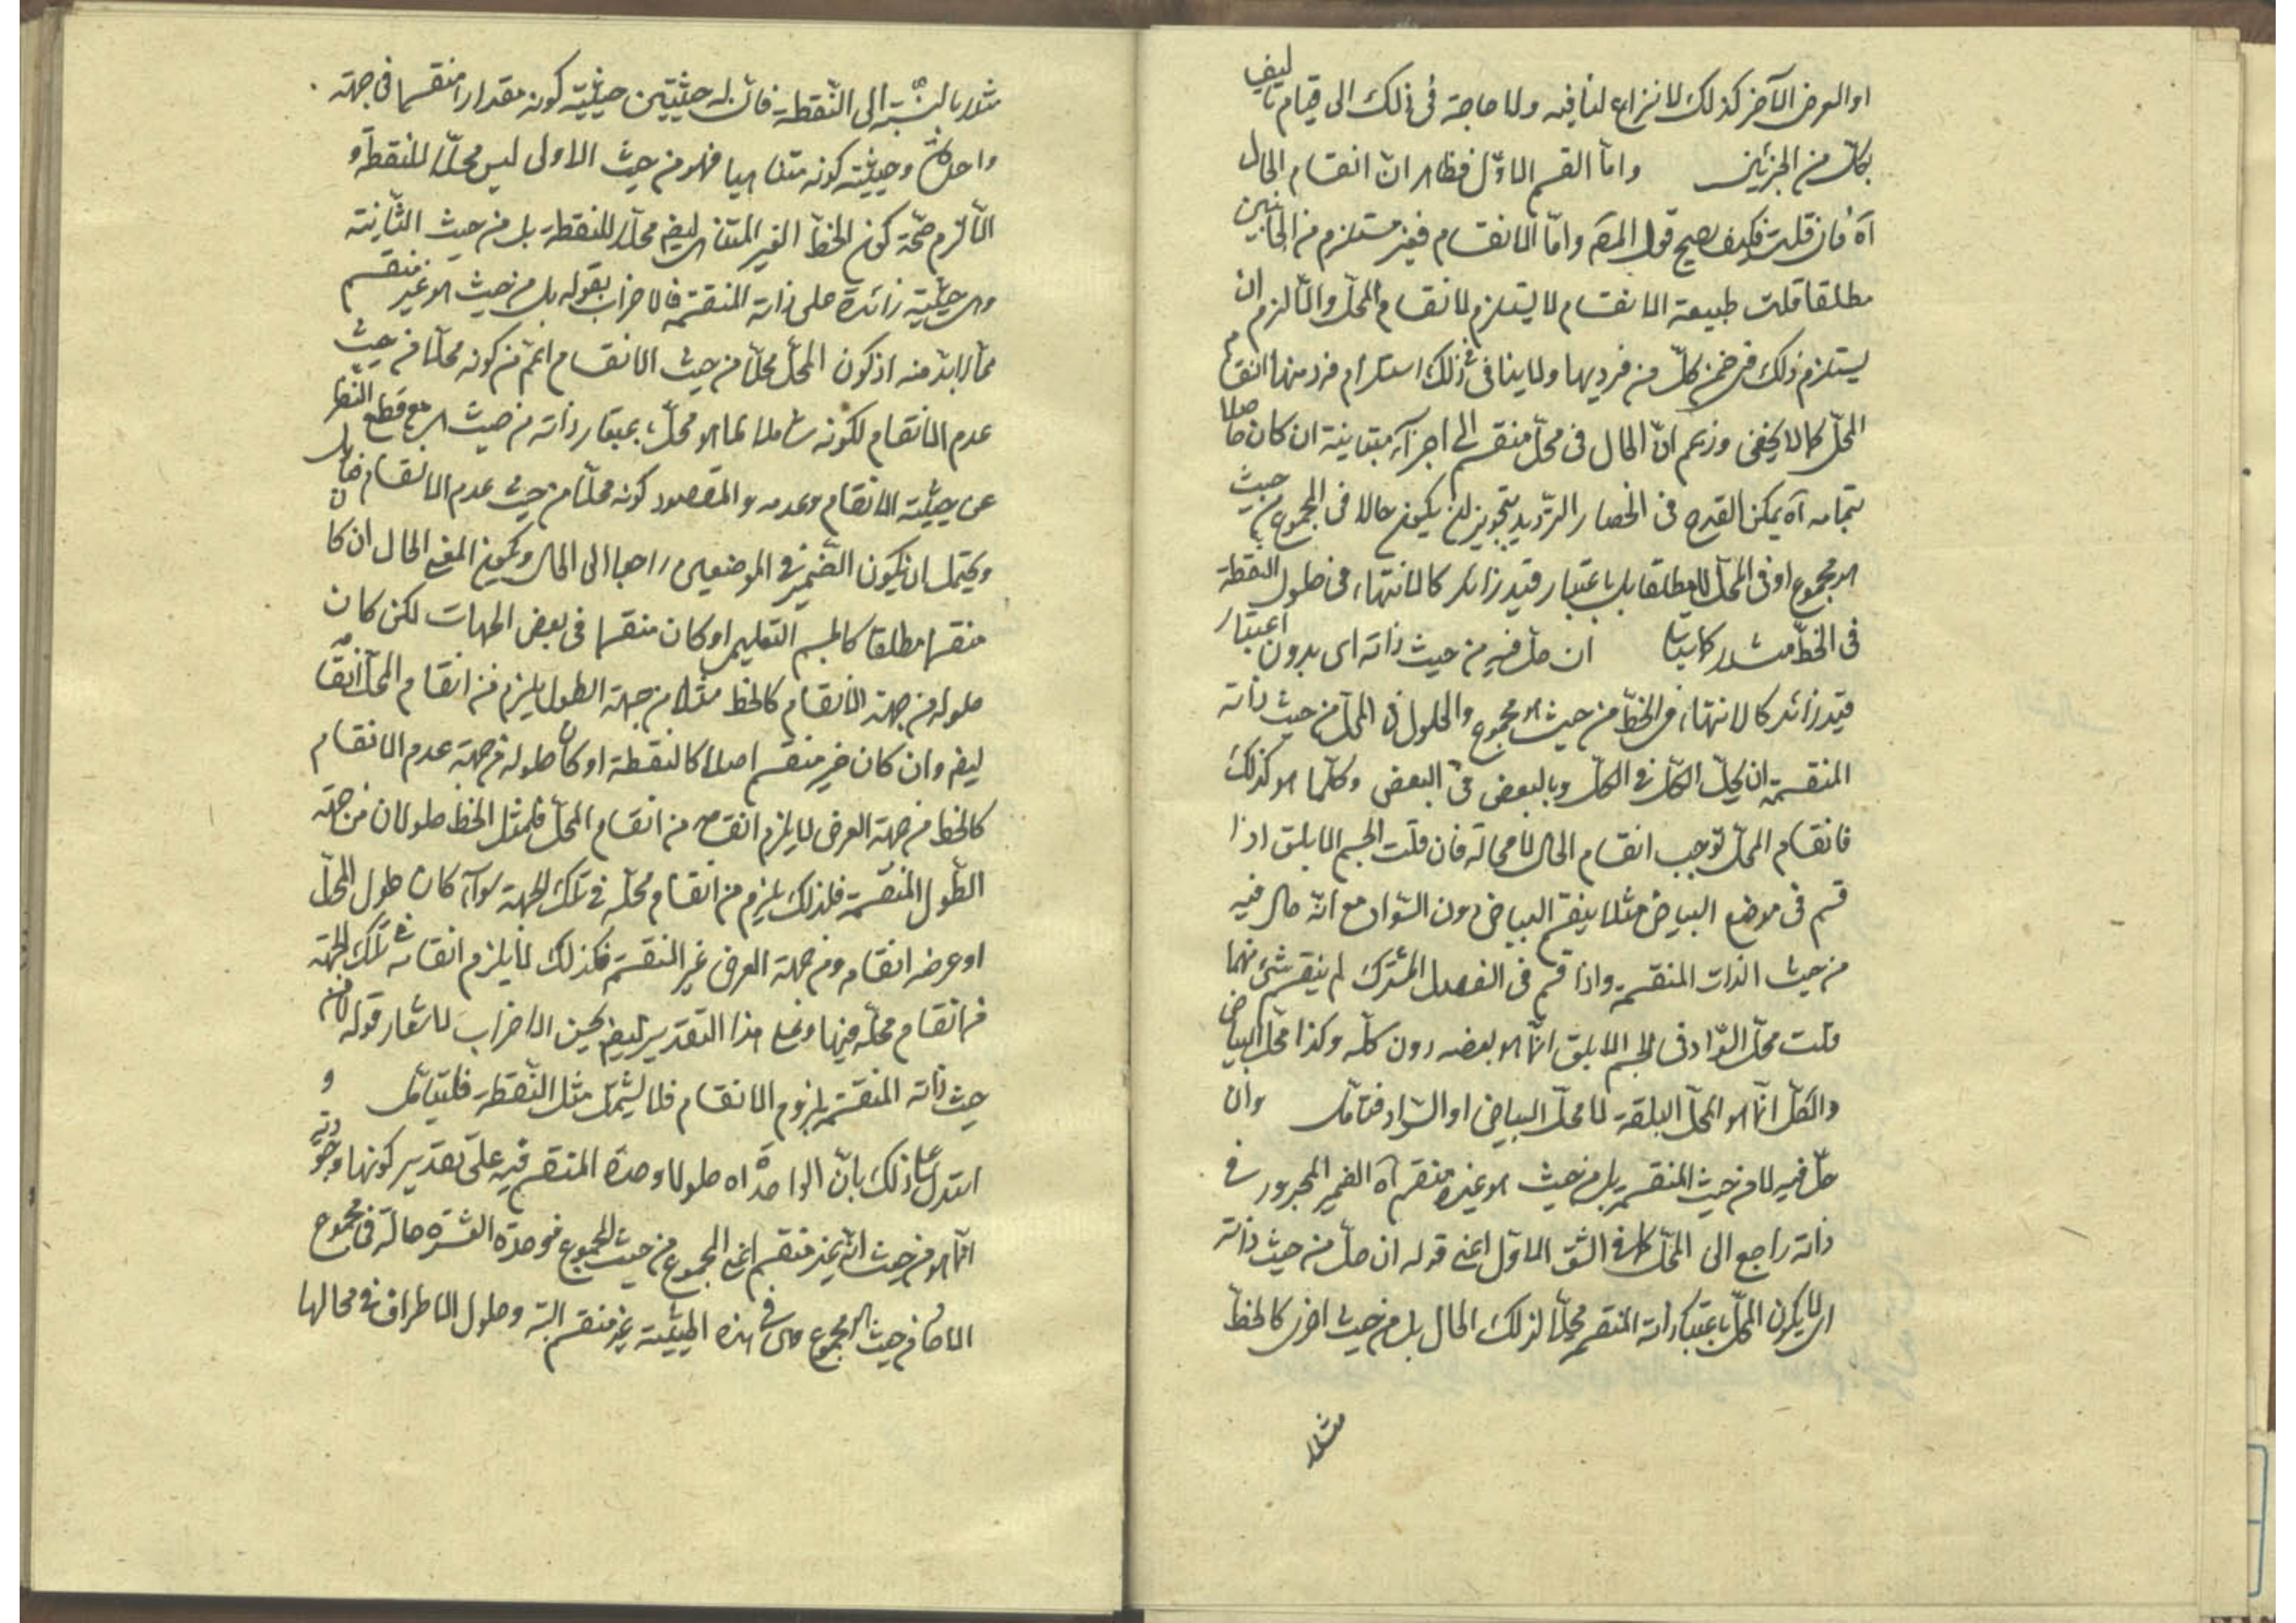 او العرض الآخر كذلك لا نزاع لنا فيه ولا حاجة فى ذلك الى قيام تاليف
بكل من الجزئين واما القسم الاول فظاهر ان انقسام الحال
آه فان قلت فكيف يصح قول المص واما الانقسام فغير مستلزم من الجانبين
مطلقا قلت طبيعة الانقسام لا يستلزم لانقسام المحل والا لزم ان
يستلزم ذلك فى ضمن كل من فرديها ولا ينافى ذلك استلزام فرد منها انقسام
المحل كما لا يخفى وزعم ان الحال فى محل منقسم الى اجزآء متباينة ان كان حاصلا
بتمامه آه يمكن القدح فى انحصار الترديد بتجويز ان يكون حالا فى المجموع من حيث
هو مجموع او فى المحل لا مطلقا بل باعتبار قيد زائد كالانتهاء فى حلول النقطة
فى الخط مثلا كما سيأتى ان حل فيه من حيث ذاته اى بدون اعتبار
قيد زائد كالانتهاء فى الخط من حيث هو مجموع والحلول فى المحل من حيث ذاته
المنقسمة ان يحل الكل فى الكل وبالبعض فى البعض وكلما هو كذلك
فانقسام المحل توجب انقسام الحال لا محالة فان قلت الجسم الابلق اذا
قسم فى موضع البياض مثلا ينقسم البياض دون السواد مع انه حال فيه
من حيث الذات المنقسمة واذا قسم فى الفصل المشترك لم ينقسم شئ منهما
قلت محل السواد فى الجسم الابلق انما هو بعضه دون كله وكذا محل البياض
والكل انما هو المحل البلقة لا محل البياض او السواد فتأمل وان
حل فيه لا من حيث المنقسمة بل من حيث هو غير منقسم آه الضمير المجرور فى
ذاته راجع الى المحل كما فى الشق الاول اعنى قوله ان حل من حيث ذاته
اى لا يكون المحل باعتبار ذاته المنقسمة محلا لذلك الحال بل من حيث اخرى كالخط
مثلا
مثلا بالنسبة الى النقطة فان له حيثيتين حيثية كونه مقدارا منقسما فى جهة
واحدة وحيثية كونه متناهيا فهو من حيث الاولى ليس محلا للنقطة و
الا لزم صحة كون الخط الغير المتناهى ايضا محلا للنقطة بل من حيث الثانية
وهى حيثية زائدة على ذاته المنقسمة فالاضراب بقوله بل من حيث هو غير منقسم
مما لا بد منه اذ كون المحل محلا من حيث الانقسام اعم من كونه محلا من حيث
عدم الانقسام لكونه شاملا لما هو محل باعتبار ذاته من حيث هى مع قطع النظر
عن حيثية الانقسام وعدمه والمقصود كونه محلا من حيث عدم الانقسام فتأمل
ويحتمل ان يكون الضمير فى الموضعين راجعا الى الحال ويكون المعنى الحال ان كان
منقسما مطلقا كالجسم التعليمى او كان منقسما فى بعض الجهات لكن كان
حلوله من جهة الانقسام كالخط مثلا من جهة الطول يلزم من انقسام المحل انقسامه
ايضا وان كان غير منقسم اصلا كالنقطة او كان حلوله من جهة عدم الانقسام
كالخط من جهة العرض لا يلزم انقسامه من انقسام المحل فلمثل الخط حلولان من جهة
الطول المنقسمة فلذلك يلزم من انقسام محله فى تلك الجهة سوآء كان طول المحل
او عرضه انقسامه ومن جهة العرض غير المنقسمة فكذلك لا يلزم انقسامه فى تلك الجهة
من انقسام محله فيها وعلى هذا التقدير ايضا يحسن الاضراب لاشعار قوله لا من
حيث ذاته المنقسمة بلزوم الانقسام فلا يشمل مثل النقطة فليتأمل و
استدل على ذلك بان الواحدة آه حلول وحدة المنقسم فيه على تقدير كونها وجودية
انما هو من حيث انه غير منقسم اعنى المجموع من حيث المجموع فوحدة العشرة حالة فى مجموع
الآحاد من حيث هو مجموع وهى فى هذه الحيثية غير منقسم البتة وحلول الاطراف فى محالها